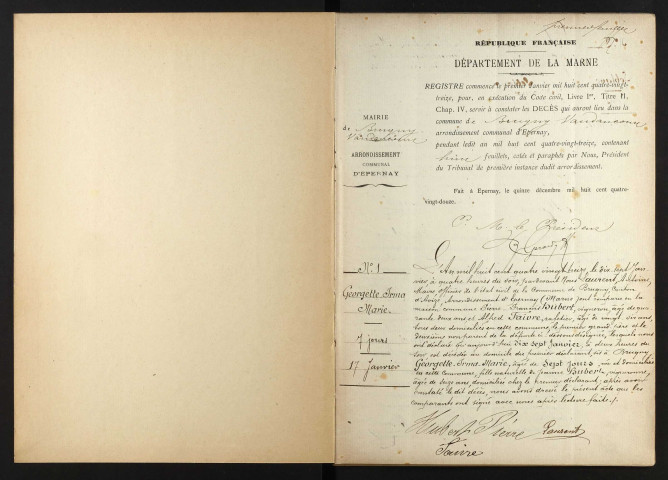 premier feuillet
RÉPUBLIQUE FRANÇAISE
DÉPARTEMENT DE LA MARNE
REGISTRE commencé le premier Janvier mil huit cent quatre-vingt-
treize, pour, en exécution du Code civil, Livre Ier, Titre II,
Chap. IV, servir à constater les DÉCÈS qui auront lieu dans la
commune de Brugny Vaudancourt
arrondissement communal d'Epernay,
pendant ledit an mil huit cent quatre-vingt-treize, contenant
feuillets, cotés et paraphés par Nous, Président
du Tribunal de première instance dudit arrondissement.
Fait à Epernay, le quinze décembre mil huit cent quatre-
vingt-douze.
MAIRIE
de Brugny
Vaudancourt
ARRONDISSEMENT
COMMUNAL
D'EPERNAY
P. M. le Président
No. 1
Georgette Irma
Marie
7 jours
17 Janvier
L'An mil huit cent quatre vingt treize, le dix sept Jan-
vier à quatre heures du soir, pardevant Nous Laurent, Antoine,
Maire officier de l'état civil de la Commune de Brugny, Canton
d'Avize, Arrondissement d'Epernay (Marne) sont comparus en la
maison commune Pierre François Hubert, vigneron, âgé de qua-
rante deux ans et Alfred Faivre, âgé de vingt six ans,
tous deux domiciliés en cette commune, le premier grand père et le
deuxième non parent de la défunte ci-dessous désignée, lesquels nous
ont déclaré qu'aujourd'hui dix sept Janvier, à deux heures du
soir est décédée au domicile du premier déclarant, sis à Brugny
Georgette, Irma, Marie, âgée de Sept Jours, née et domiciliée
en cette commune, fille naturelle de Jeanne Hubert, vigneronne,
âgée de seize ans domiciliée chez le premier déclarant; après avoir
constaté le dit décès, nous avons dressé le présent acte que les
comparants ont signé avec nous après lecture faite.
Hubert Pierre Laurent
Faivre